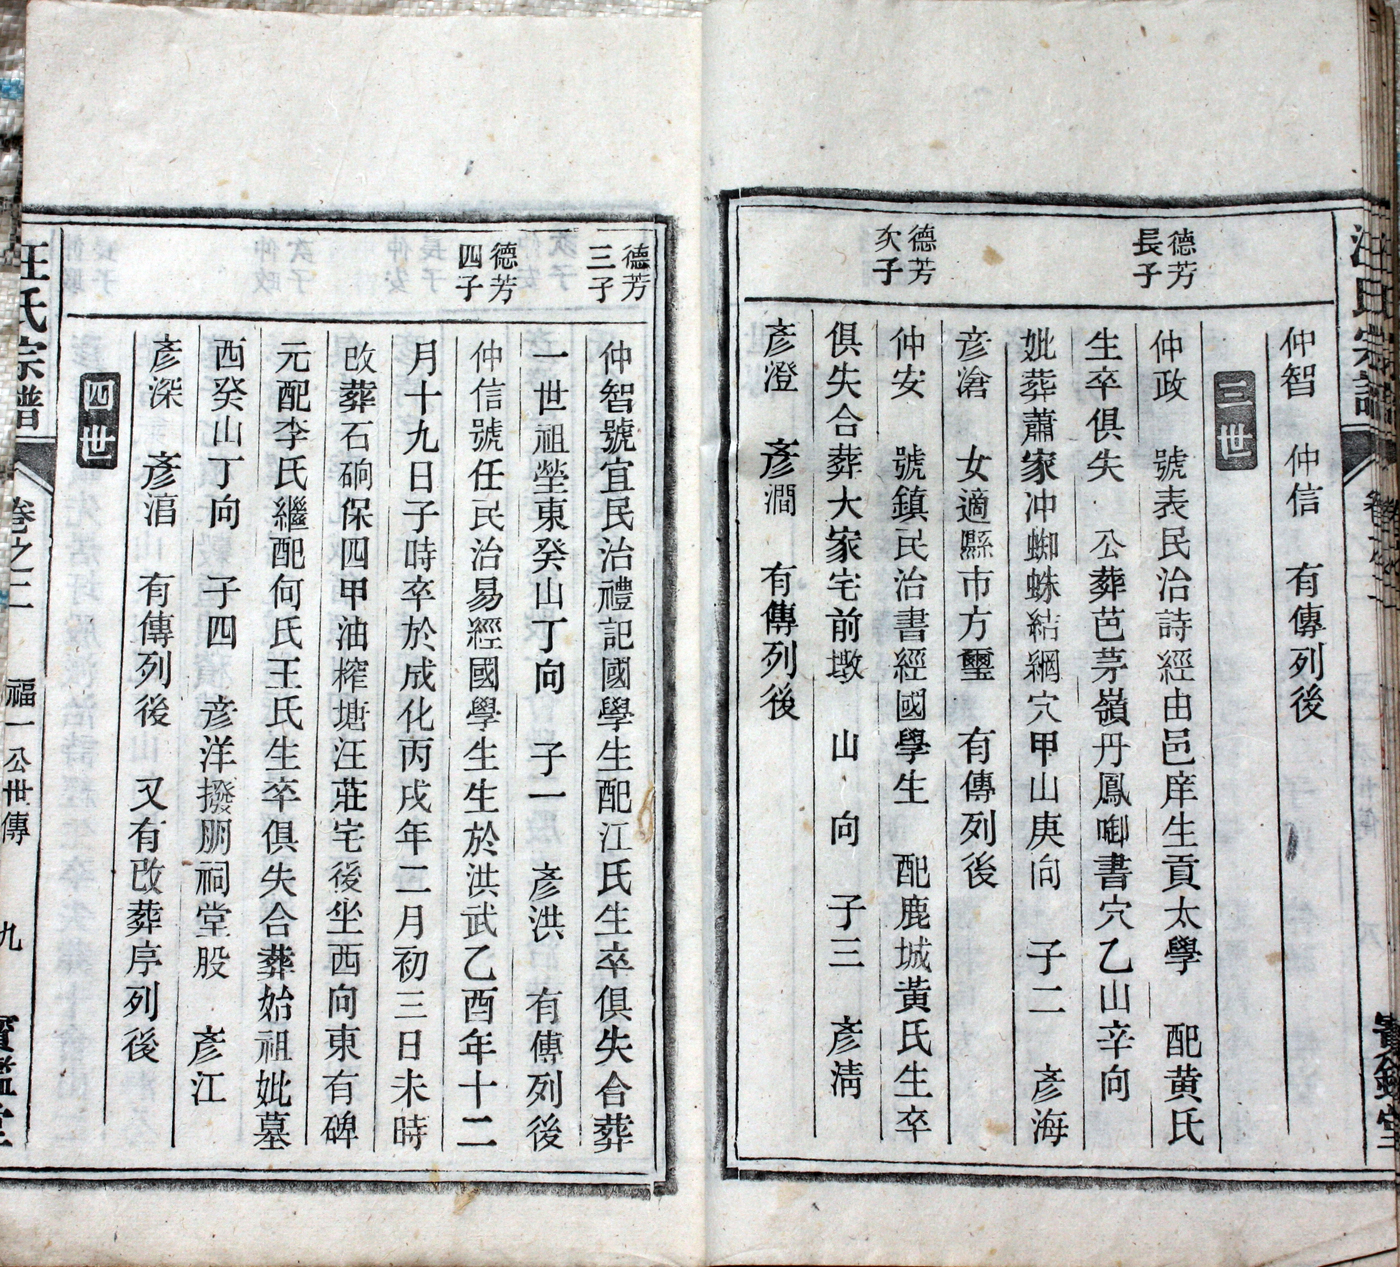 汪氏宗譜
仲智　仲信　有傳列後
三世
德芳
長子
仲政　號表民治詩經由邑庠生貢太學　配黄氏
生卒俱失　公葬芭茅嶺丹鳳啣書穴乙山辛向
妣葬蕭家冲蜘蛛結網穴甲山庚向　子二　彥海
彥滄　女適縣市方璽　有傳列後
德芳
次子
仲安　號鎮民治書經國學生　配鹿城黃氏生卒
俱失合葬大家宅前墩　山　向　子三　彥清
彥澄　彥澗　有傳列後
德芳
三子
仲智號宜民治禮記國學生配江氏生卒俱失合葬
一世祖塋東癸山丁向　子一　彥洪　有傳列後
德芳
四子
仲信號任民治易經國學生生於洪武乙酉年十二
月十九日子時卒於成化丙戌年二月初三日未時
改葬石硐保四甲油榨塘汪莊宅後坐西向東有碑
元配李氏繼配何氏王氏生卒俱失合葬始祖妣墓
西癸山丁向　子四　彥洋撥胭祠堂股　彥江
彥深　彥涫　有傳列後　又有改葬序列後
四世
汪氏宗譜
卷之二　福一公世傳　九
寶鑑堂